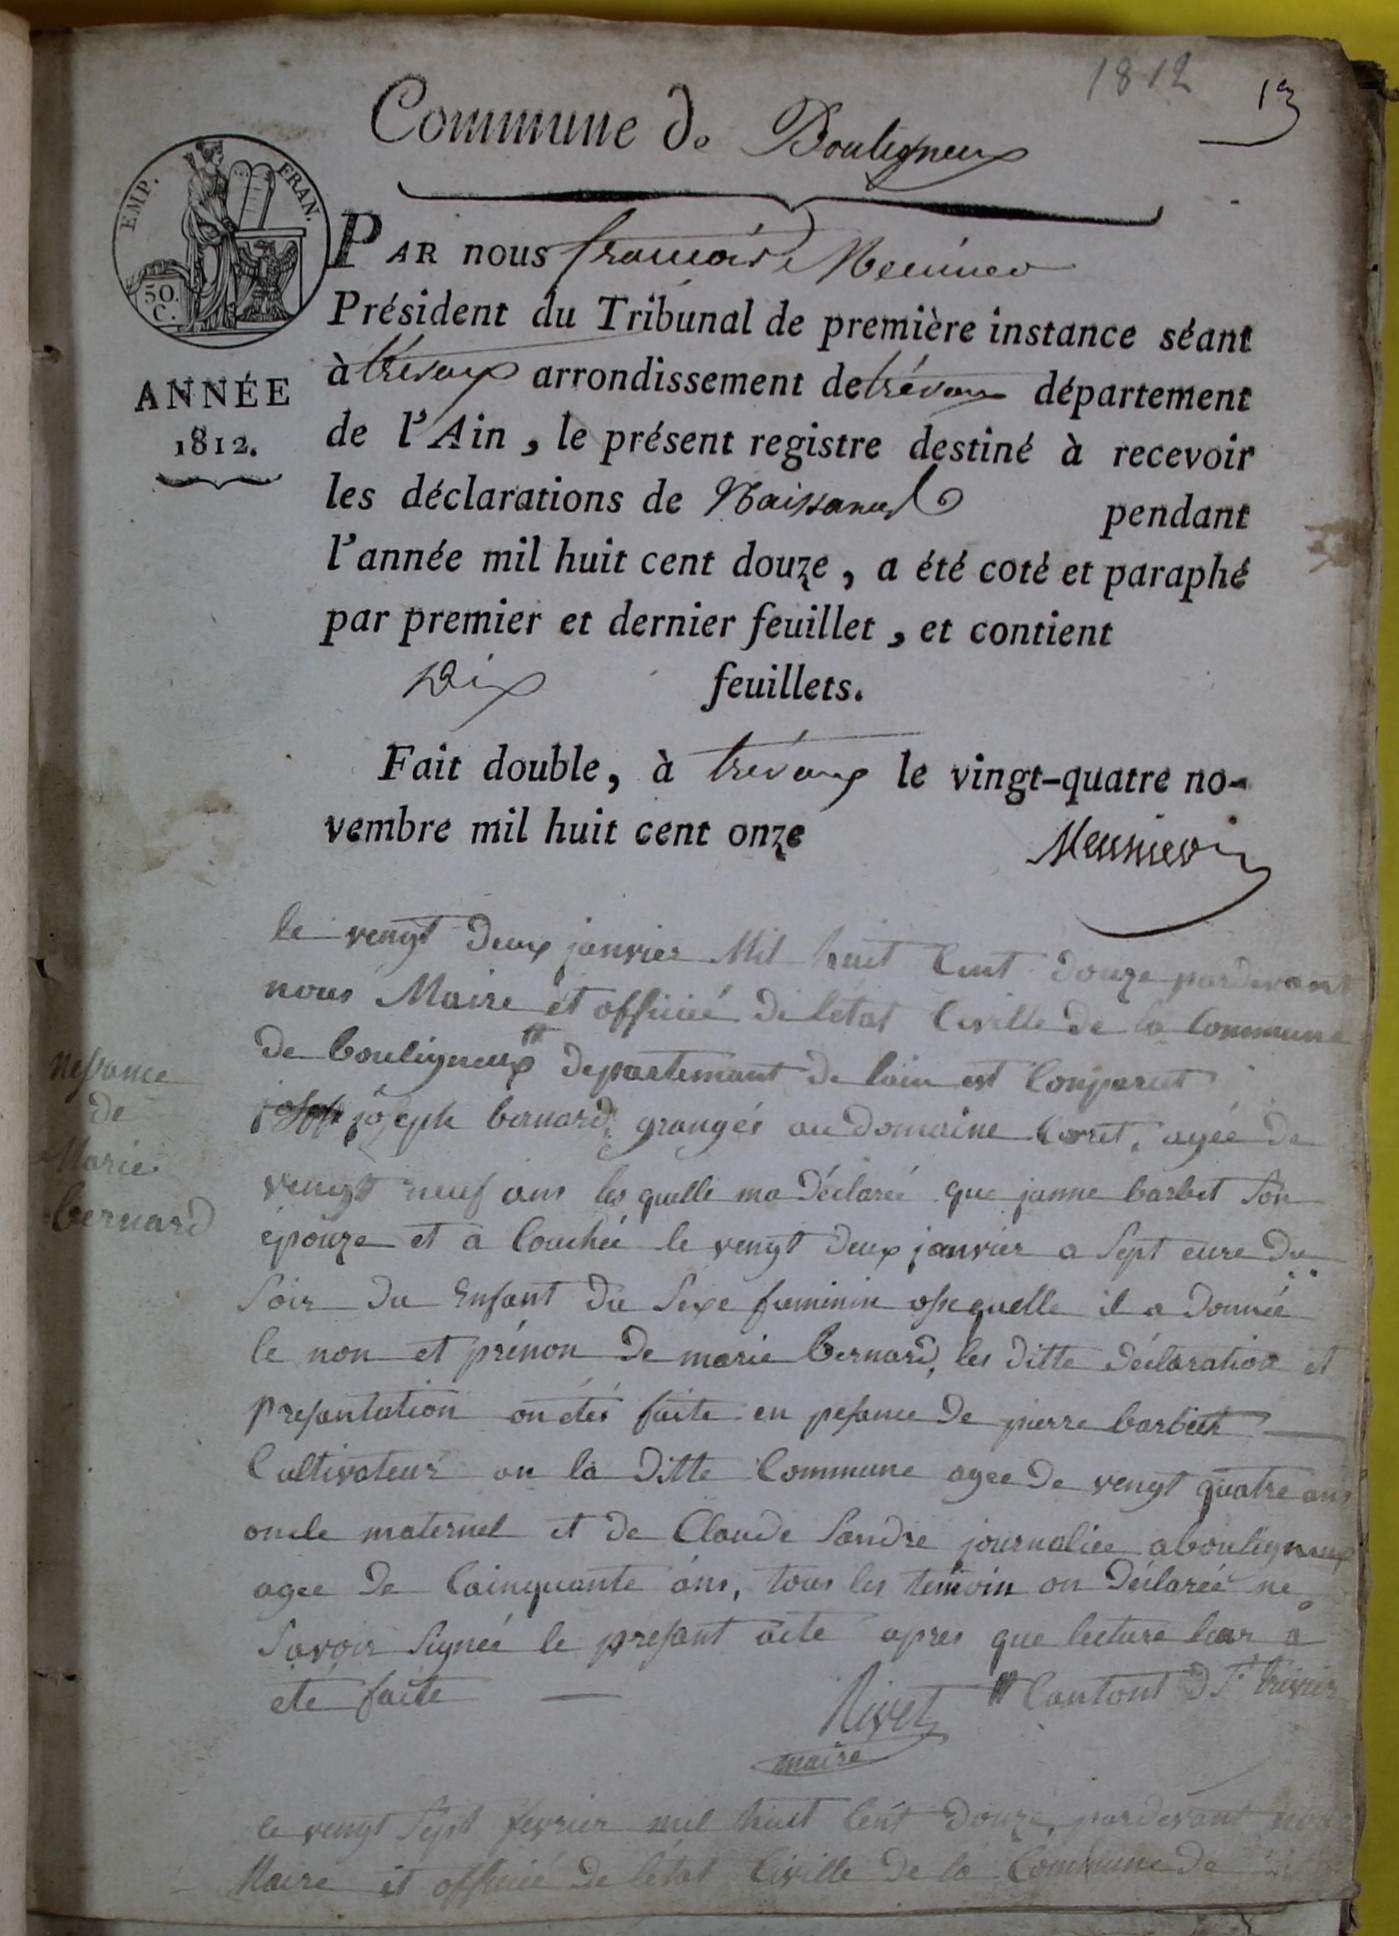 1812
13
Commune de Bouligneux
EMP. FRAN.
50.
C.
ANNÉE
1812.
PAR nous françois Meunier
Président du Tribunal de première instance séant
à trévoux arrondissement de trévoux département
de l'Ain, le présent registre destiné à recevoir
les déclarations de Naissances pendant
l'année mil huit cent douze, a été coté et paraphé
par premier et dernier feuillet, et contient
Dix feuillets.
Fait double, à trévoux le vingt-quatre no-
vembre mil huit cent onze
Meunier
nessance
de
Marie
bernard
le vengt deux janvier Mil huit Cent douze pardevant
nous Maire et officié de létat Civille de la Commune
de bouligneux # departement de lain est Comparut
joseph bernard grangés au domaine Corret, agée de
vengt neuf ans les quelle ma déclareé que janne barbet Son
épouze et a Couchée le vengt deux janvier a Sept eure du
Soir du Enfant du Sexe feminin quelle il a donnée
le non et prénon de marie bernard, les ditte déclaration et
presantation on étés faite en pesance de pierre barbet
Cultivateur an la ditte Commune agee de vengt quatre ans
oncle maternel et de Claude Sandre journaliee a bouligneux
agee de Cainquante ans, tous les temoin on déclareé ne
Savoir Signeé le presant acte apres que lecture leur a
été faite
# Cantont d St. trivier
Rivet
maire
le vengt Sept fevrier mil huit Cent douze, pardevant nous
Maire et officié de létat Civille de la Commune de